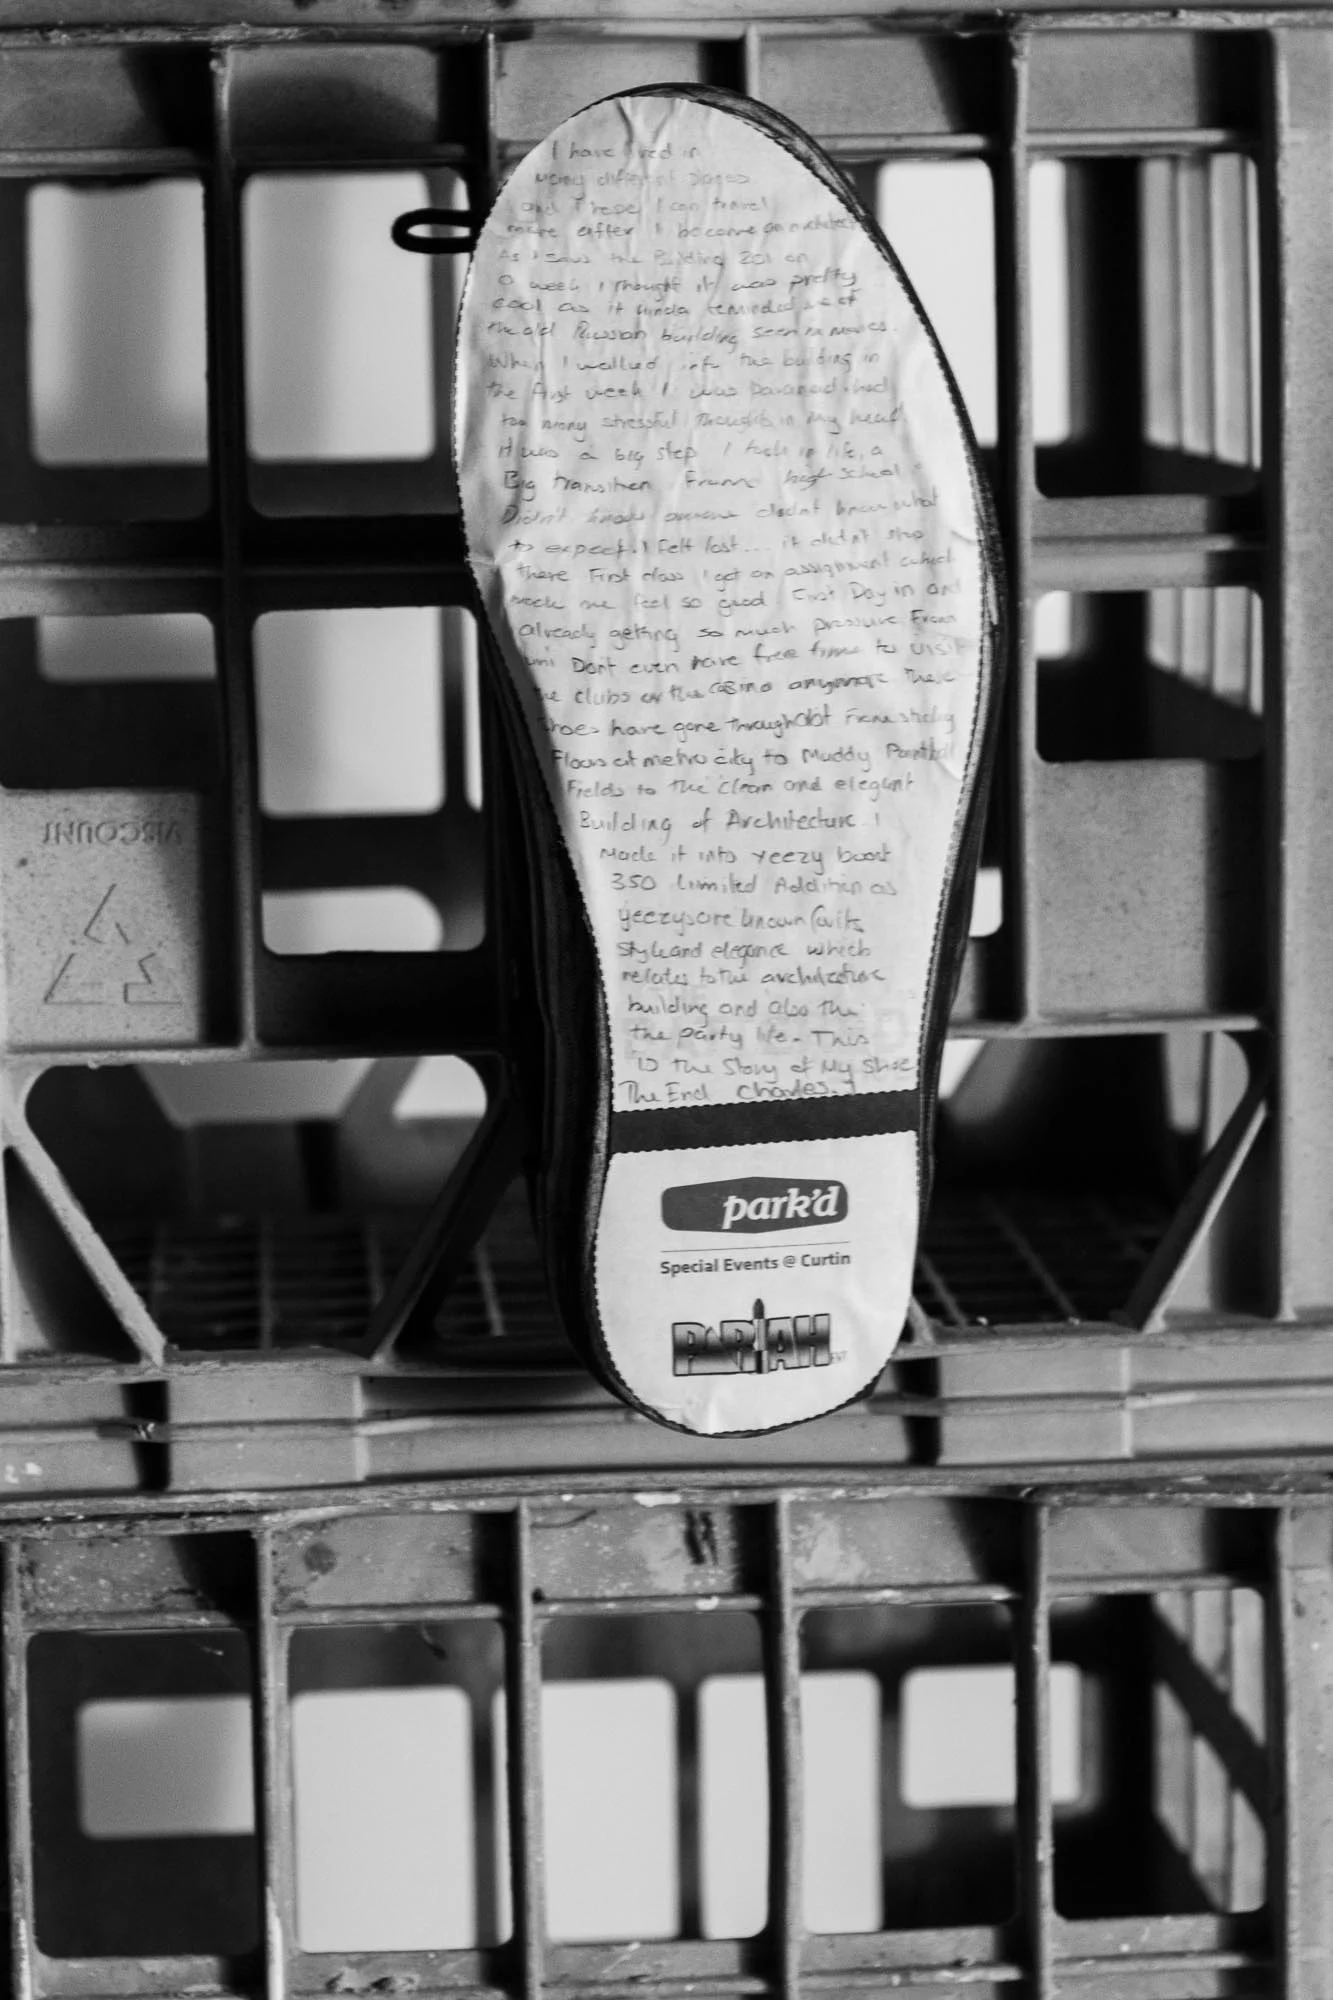 I have lived in
many different places
and I hope I can travel
more after I become an architect
As I saw the Building 201 on
O week I thought it was pretty
cool as it kinda reminded me of
the old Russian building seen in movies.
When I walked into the building in
the first week I was paranoid had
too many stressful thoughts in my head
it was a big step I took in life, a
Big transition From high school
Didn't know anyone didnt know what
to expect. I Felt lost... it didn't stop
there First class I got an assignment which
made me feel so good First Day in and
already getting so much pressure From
uni Dont even have free time to visit
the clubs or the casino anymore These
shoes have gone through alot From sticky
Floors at metro city to Muddy Paintball
Fields to the Clean and elegant
Building of Architecture I
Made it into yeezy boost
350 Limited Addition as
yeezys are known for its
style and elegance which
relates to the architecture
building and also the
the party life. This
is the Story of My Shoe
The End Charles.J
park'd
Special Events @ Curtin
PARIAH
VISCOUNT
3